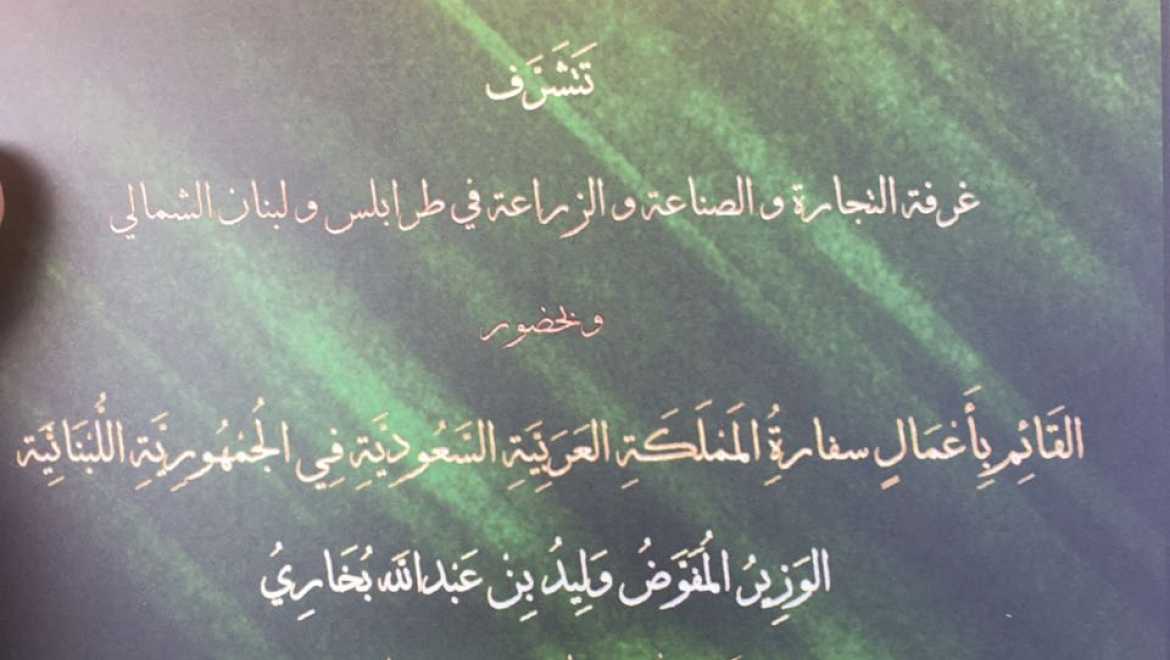 تَتَشَرَف
غرفة التجارة والصناعة والزراعة في طرابلس ولبنان الشمالي
وبحضور
القَائِم بِأَعْمَالِ سفارةُ المَملَكَةِ العَرَبَيَةِ السَعُودِيَةِ فِي الجُمْهُورِيَةِ اللُبْنَانِيَة
الوَزِيرُ المُفَوَضُ وَلِيدُ بِنْ عَبْدالله بُخَارِيُ